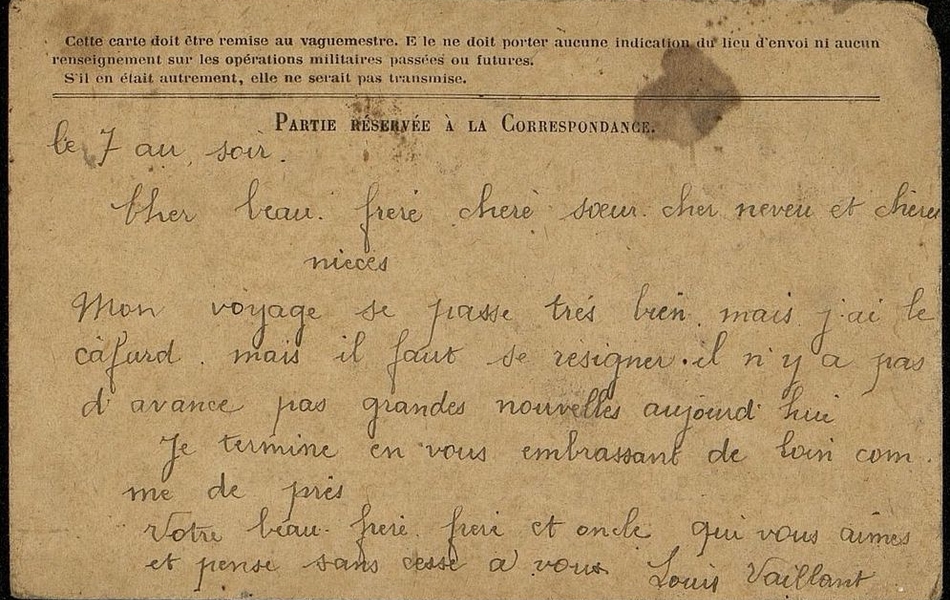 Cette carte doit être remise au vaguemestre. E le ne doit porter aucune indication du lieu d'envoi ni aucun
renseignement sur les opérations militaires passées ou futures.
S'il en était autrement, elle ne serait pas transmise.
PARTIE RÉSERVÉE À LA CORRESPONDANCE.
le 7 au soir.
Cher beau-frère chère sœur cher neveu et chères
nièces
Mon voyage se passe très bien mais j'ai le
cafard. mais il faut se résigner. il n'y a pas
d'avance pas grandes nouvelles aujourd'hui
Je termine en vous embrassant de loin com
me de près
Votre beau-frère frère et oncle qui vous aimes
et pense sans cesse à vous Louis Vaillant